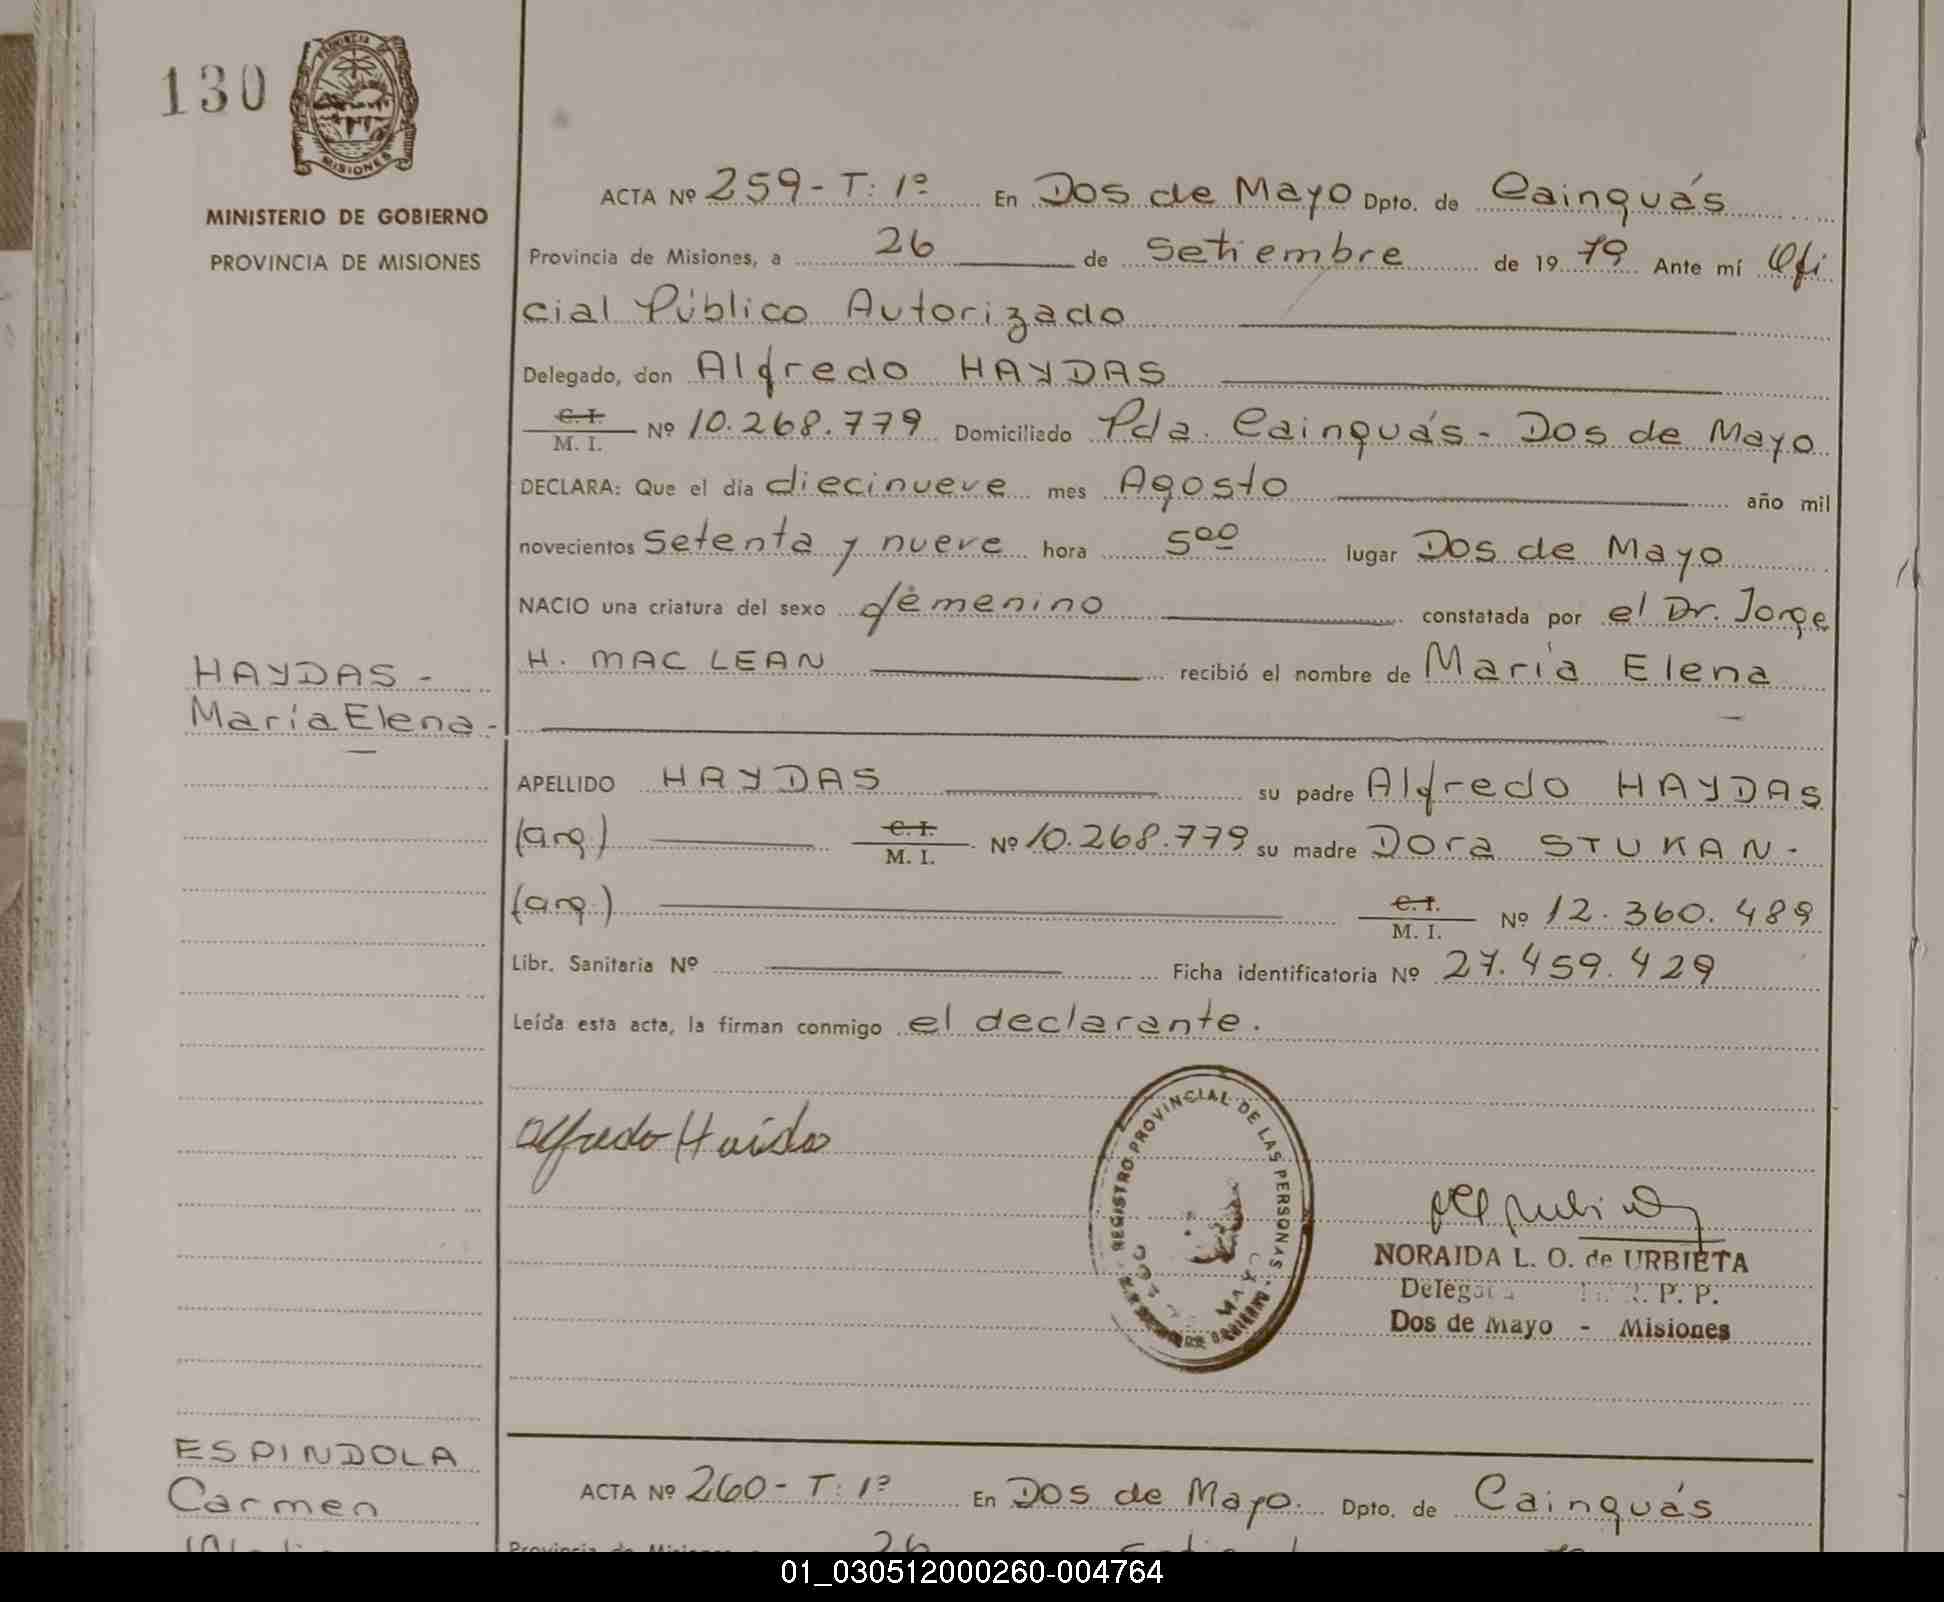 130
PROVINCIA DE
MISIONES
MINISTERIO DE GOBIERNO
PROVINCIA DE MISIONES
ACTA Nº 259 - T: 1º En Dos de Mayo Dpto. de Cainguás
Provincia de Misiones, a 26 de Setiembre de 1979 Ante mí Ofi
cial Público Autorizado
Delegado, don Alfredo HAYDAS
C. I.
M. I. Nº 10.268.779 Domiciliado Pda. Cainguás - Dos de Mayo
DECLARA: Que el día diecinueve mes Agosto año mil
novecientos Setenta y nueve hora 5⁰⁰ lugar Dos de Mayo
NACIO una criatura del sexo femenino constatada por el Dr. Jorge
H. MAC LEAN recibió el nombre de María Elena
HAYDAS -
María Elena -
APELLIDO HAYDAS su padre Alfredo HAYDAS
(arg.) C. I.
M. I. Nº 10.268.779 su madre Dora STUKAN -
(arg.) C. I.
M. I. Nº 12.360.489
Libr. Sanitaria Nº Ficha identificatoria Nº 27.459.429
Leída esta acta, la firman conmigo el declarante.
Alfredo Haidas
REGISTRO PROVINCIAL DE LAS PERSONAS
NORAIDA L. O. de URBIETA
R. P. P.
Dos de Mayo - Misiones
ESPINDOLA
Carmen
ACTA Nº 260 - T: 1º En Dos de Mayo. Dpto. de Cainguás
Provincia de Misiones, a 26 Setiembre
01_030512000260-004764